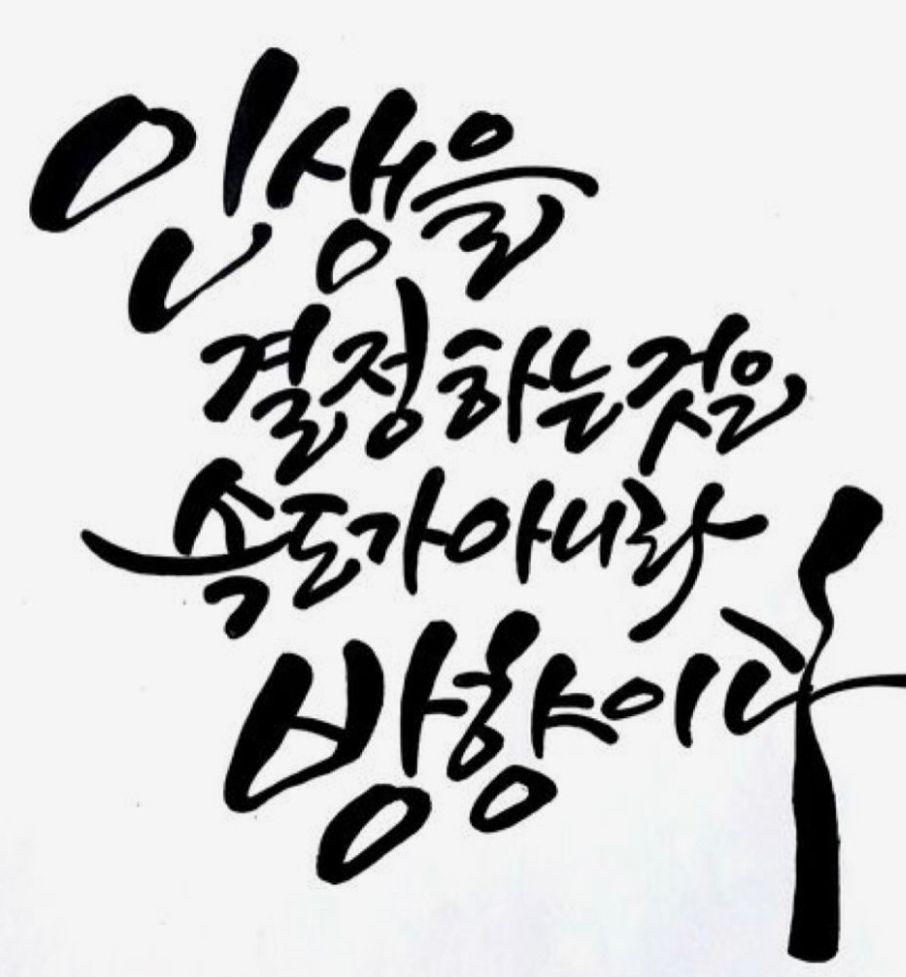 인생을
결정하는것은
속도가아니라
방향이다